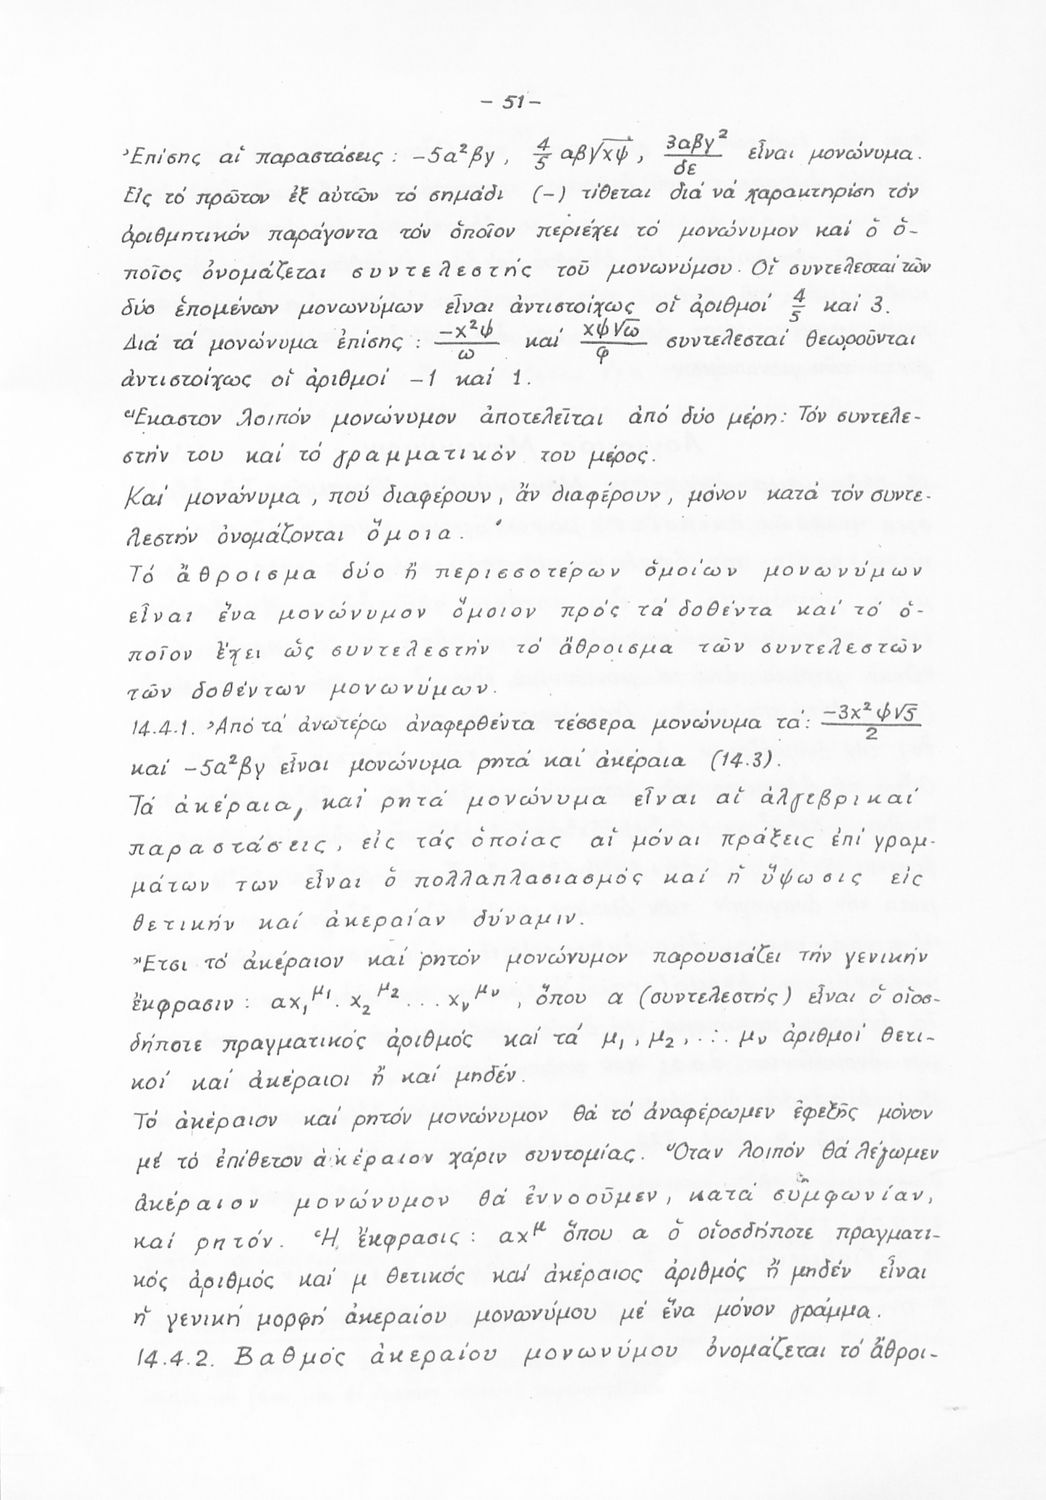 - 51 -
Ἐπίσης αἱ παραστάσεις : -5α²βγ , 4/5 αβ√xψ , 3αβγ²/δε εἶναι μονώνυμα.
Εἰς τό πρῶτον ἐξ αὐτῶν τό σημάδι (-) τίθεται διά νά χαρακτηρίση τόν
ἀριθμητικόν παράγοντα τόν ὁποῖον περιέχει τό μονώνυμον καί ὁ ὁ-
ποῖος ὀνομάζεται συντελεστής τοῦ μονωνύμου. Οἱ συντελεσταί τῶν
δύο ἑπομένων μονωνύμων εἶναι ἀντιστοίχως οἱ ἀριθμοί 4/5 καί 3.
Διά τά μονώνυμα ἐπίσης : -x²ψ/ω καί xψ√ω/φ συντελεσταί θεωροῦνται
ἀντιστοίχως οἱ ἀριθμοί -1 καί 1.
Ἕκαστον λοιπόν μονώνυμον ἀποτελεῖται ἀπό δύο μέρη: Τόν συντελε-
στήν του καί τό γραμματικόν του μέρος.
Καί μονώνυμα , πού διαφέρουν , ἄν διαφέρουν , μόνον κατά τόν συντε-
λεστήν ὀνομάζονται ὅμοια.
Τό ἄθροισμα δύο ἤ περισσοτέρων ὁμοίων μονωνύμων
εἶναι ἕνα μονώνυμον ὅμοιον πρός τά δοθέντα καί τό ὁ-
ποῖον ἔχει ὡς συντελεστήν τό ἄθροισμα τῶν συντελεστῶν
τῶν δοθέντων μονωνύμων.
14.4.1. Ἀπό τά ἀνωτέρω ἀναφερθέντα τέσσερα μονώνυμα τά: -3x²ψ√5/2
καί -5α²βγ εἶναι μονώνυμα ρητά καί ἀκέραια (14.3).
Τά ἀκέραια, καί ρητά μονώνυμα εἶναι αἱ ἀλγεβρικαί
παραστάσεις , εἰς τάς ὁποίας αἱ μόναι πράξεις ἐπί γραμ-
μάτων των εἶναι ὁ πολλαπλασιασμός καί ἡ ὕψωσις εἰς
θετικήν καί ἀκεραίαν δύναμιν.
Ἔτσι τό ἀκέραιον καί ρητόν μονώνυμον παρουσιάζει τήν γενικήν
ἔκφρασιν : αx₁^μ₁ . x₂^μ₂ ... xᵥ^μᵥ , ὅπου α (συντελεστής) εἶναι ὁ οἱοσ-
δήποτε πραγματικός ἀριθμός καί τά μ₁ , μ₂ , ... μᵥ ἀριθμοί θετι-
κοί καί ἀκέραιοι ἤ καί μηδέν.
Τό ἀκέραιον καί ρητόν μονώνυμον θά τό ἀναφέρωμεν ἐφεξῆς μόνον
μέ τό ἐπίθετον ἀκέραιον χάριν συντομίας. Ὅταν λοιπόν θά λέγωμεν
ἀκέραιον μονώνυμον θά ἐννοοῦμεν , κατά συμφωνίαν,
καί ρητόν. Ἡ ἔκφρασις : αx^μ ὅπου α ὁ οἱοσδήποτε πραγματι-
κός ἀριθμός καί μ θετικός καί ἀκέραιος ἀριθμός ἤ μηδέν εἶναι
ἡ γενική μορφή ἀκεραίου μονωνύμου μέ ἕνα μόνον γράμμα.
14.4.2. Βαθμός ἀκεραίου μονωνύμου ὀνομάζεται τό ἄθροι-